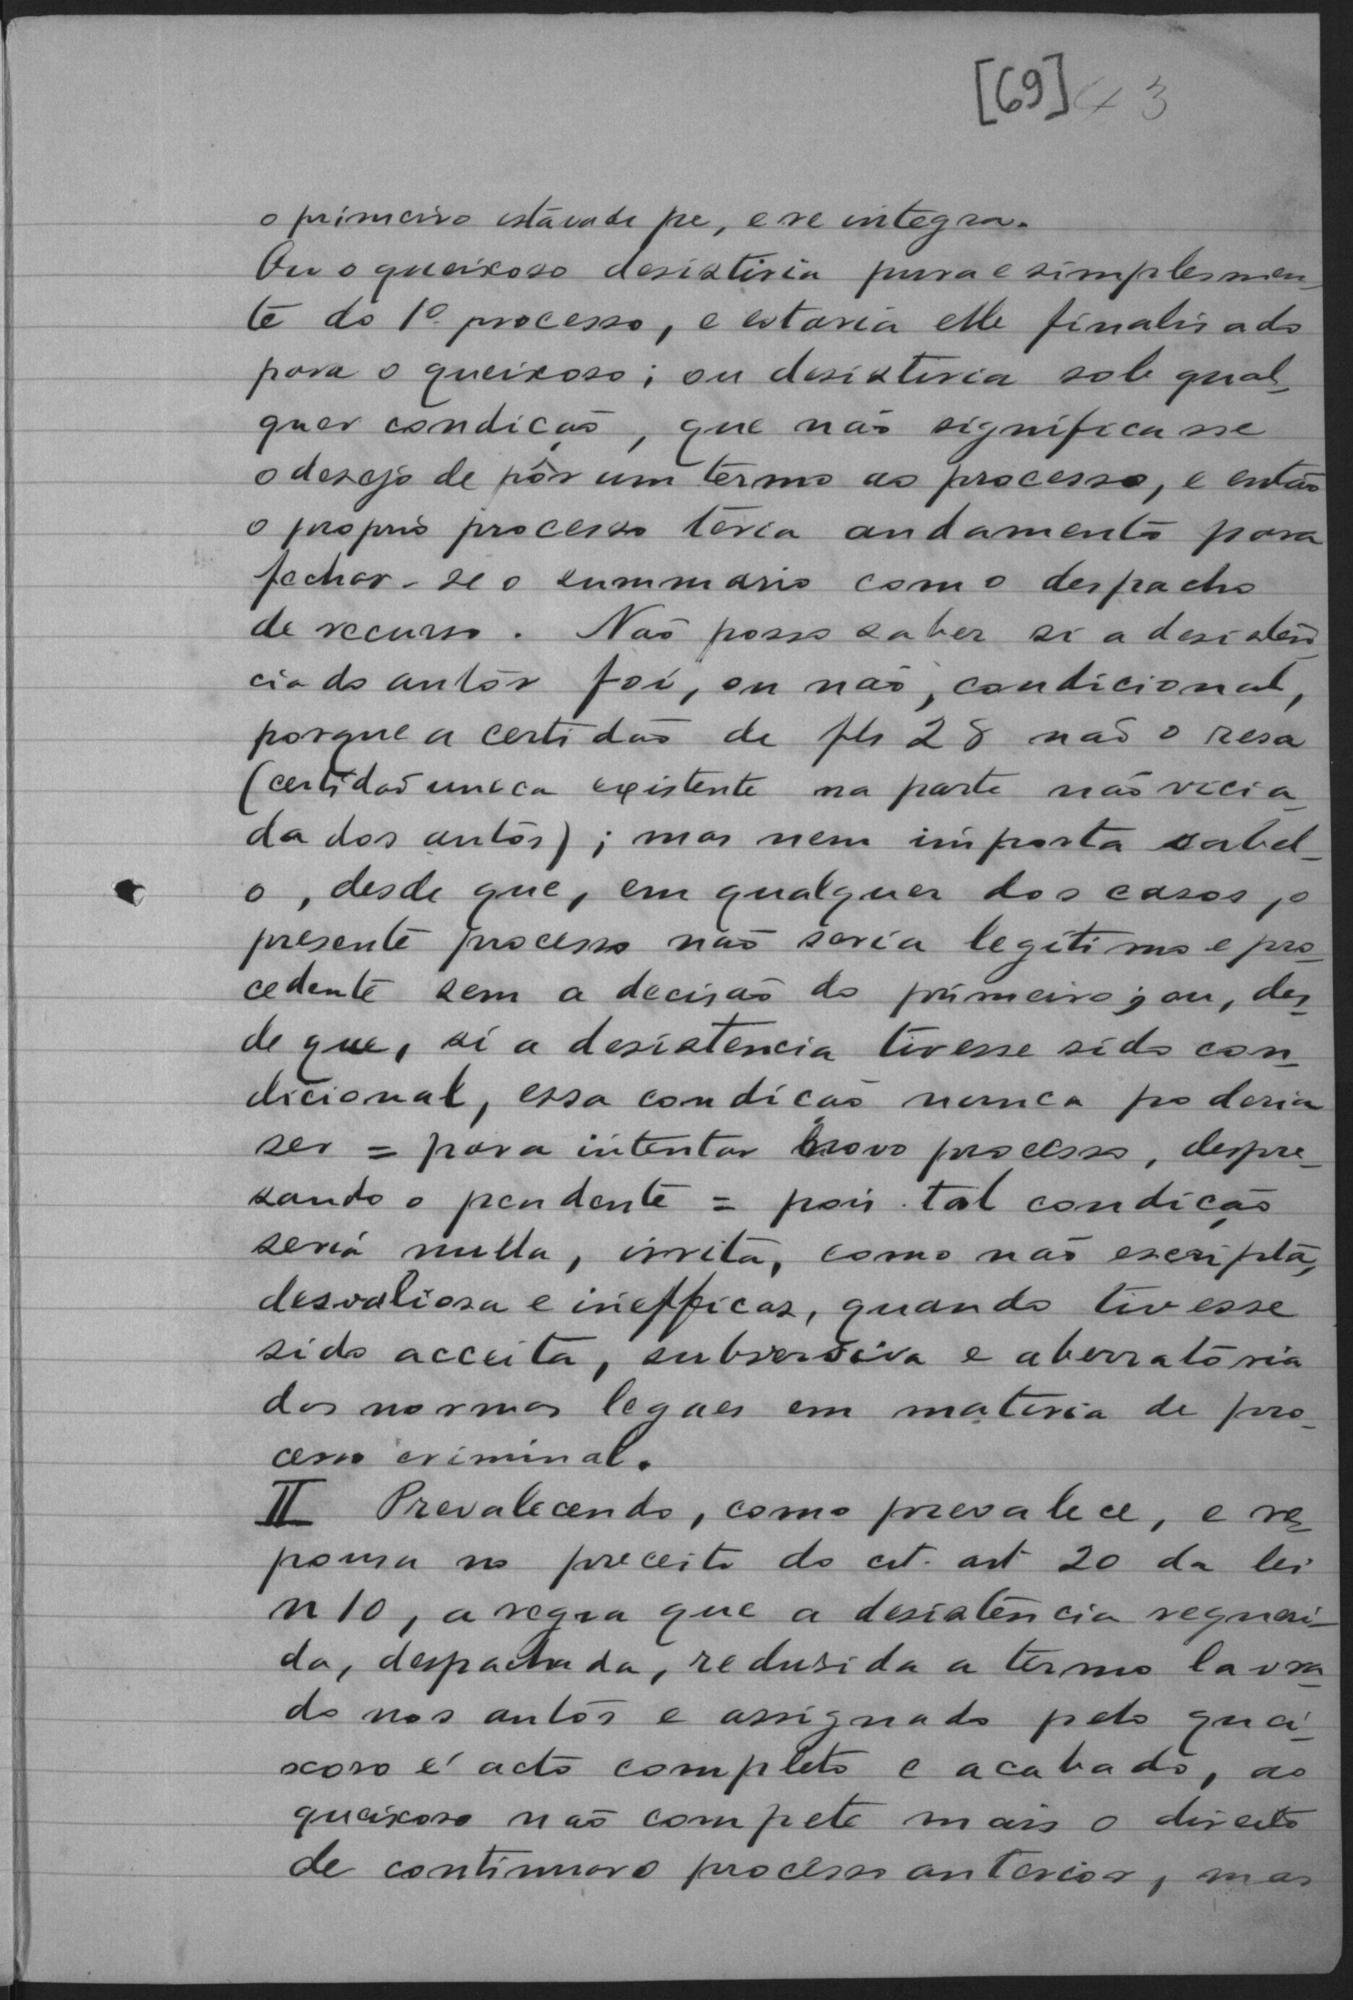 [69] 43
o primeiro estava de pé, e re integra.
Ou o queixoso desistiria pura e simplesmen-
te do 1º processo, e estaria elle finalisado
para o queixoso; ou desistiria sob qual-
quer condição, que não significasse
o desejo de pôr um termo ao processo, e então
o proprio processo teria andamento para
fechar-se o summario com o despacho
de recurso. Não posso saber si a desisten-
cia do autor foi, ou não, condicional,
porque a certidão de fls 28 não o resa
(certidão unica existente na parte não vicia-
da dos autos); mas nem importa sabel-
o, desde que, em qualquer dos casos, o
presente processo não seria legitimo e pro-
cedente sem a decisão do primeiro; ou, des-
de que, si a desistencia tivesse sido con-
dicional, essa condição nunca poderia
ser = para intentar novo processo, despre-
sando o pendente = pois tal condição
seria nulla, irrita, como não escripta,
desvaliosa e inefficaz, quando tivesse
sido acceita, subversiva e aberratoria
das normas legaes em materia de pro-
cesso criminal.
II Prevalecendo, como prevalece, e re-
pousa no preceito do cit. art 20 da lei
n 10, a regra que a desistência requeri-
da, despachada, redusida a termo lavra-
do nos autos e assignado pelo quei-
xoso é acto completo e acabado, ao
queixoso não compete mais o direito
de continuar o processo anterior, mas